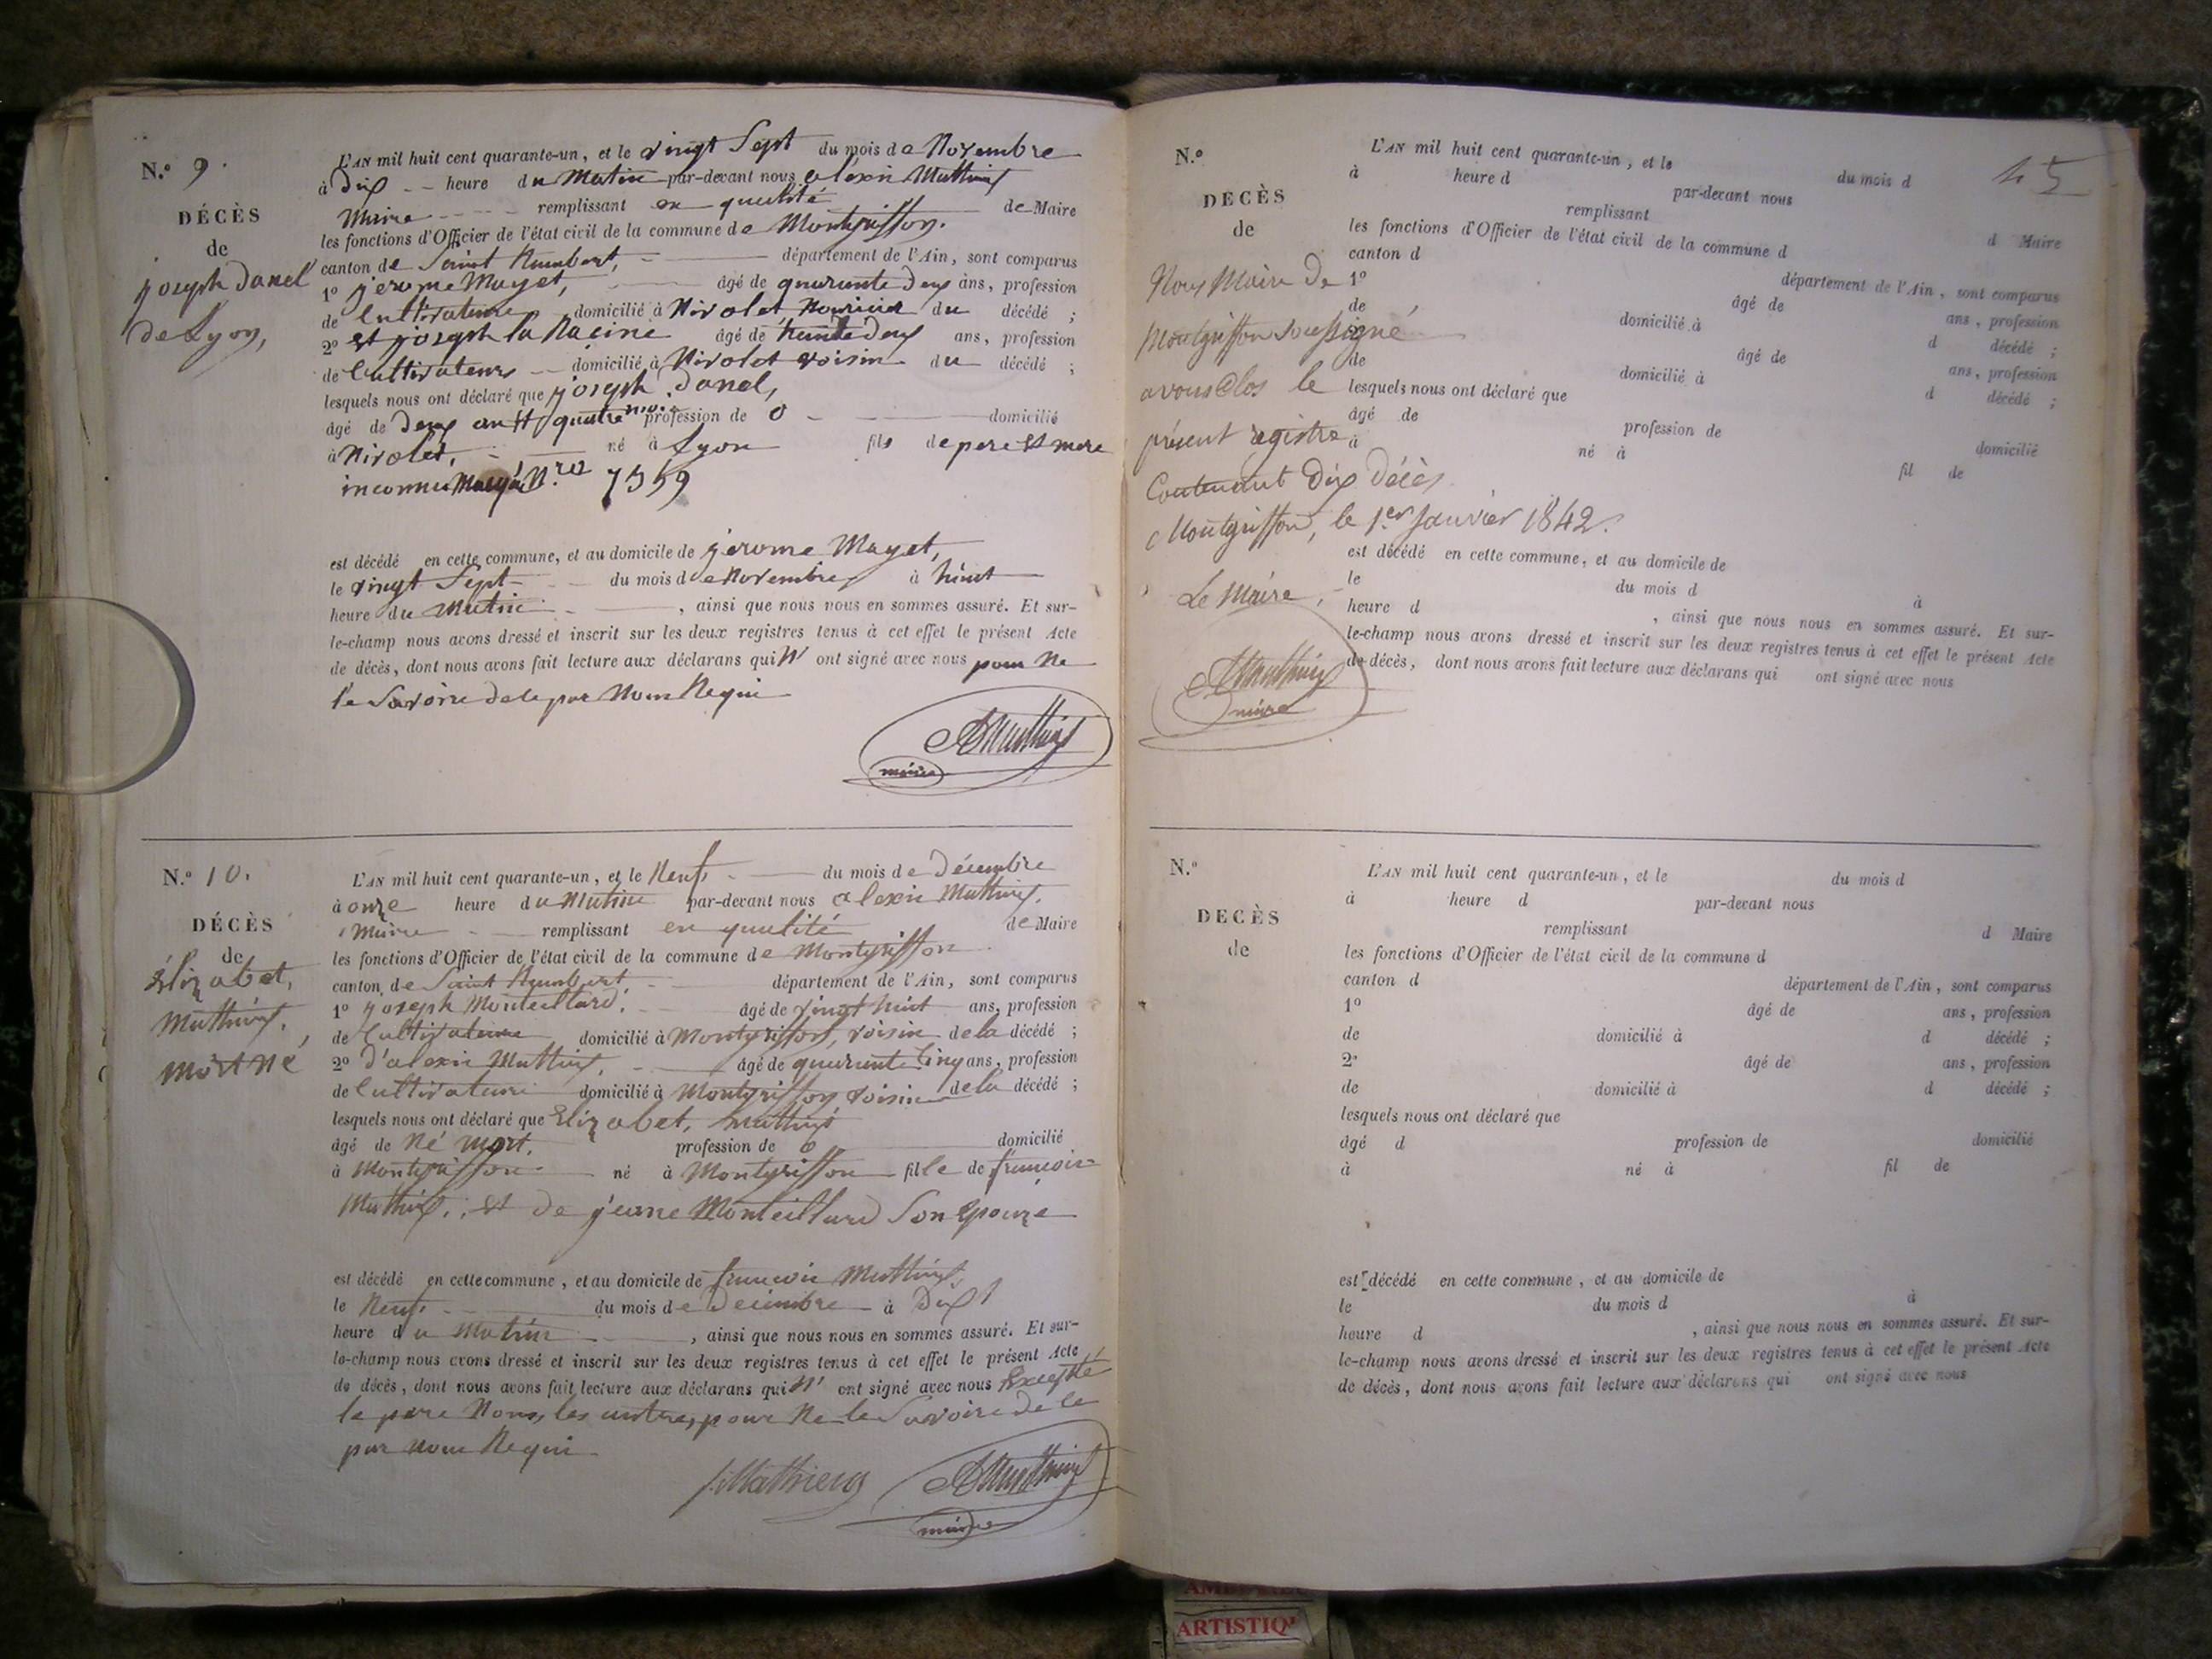 N.o 9.
DÉCÈS
de
joseph danel
de Lyon,
L'AN mil huit cent quarante-un, et le vingt Sept du mois de Novembre
à Dix heure du Matin par-devant nous alexis
Maire remplissant en qualité de Maire
les fonctions d'Officier de l'état civil de la commune de Montgriffon.
canton de Saint Rambert, département de l'Ain, sont comparus
1o jerome Mayet, âgé de quarante deux ans, profession
de Cultivateur domicilié à Nivolet Nouricier du décédé ;
2o et joseph la Racine âgé de trente deux ans, profession
de Cultivateurs domicilié à Nivolet voisin du décédé ;
lesquels nous ont déclaré que joseph danel,
âgé de deux an et quatre profession de 0 domicilié
à Nivolet, né à Lyon fils de pere et mere
inconnu
est décédé en cette commune, et au domicile de jerome Mayet,
le vingt Sept du mois de Novembre à huit
heure du Matin , ainsi que nous nous en sommes assuré. Et sur-
le-champ nous avons dressé et inscrit sur les deux registres tenus à cet effet le présent Acte
de décès, dont nous avons fait lecture aux déclarans qui N' ont signé avec nous pour Ne
le Savoire de le par Nous Requi
maire
N.o 10.
DÉCÈS
de
Élizabet,
Mort Né
L'AN mil huit cent quarante-un, et le Neuf du mois de Décembre
à onze heure du Matin par-devant nous alexis
Maire remplissant en qualité de Maire
les fonctions d'Officier de l'état civil de la commune de Montgriffon
canton de Saint Rambert département de l'Ain, sont comparus
1o joseph Monteillard. âgé de vingt huit ans, profession
de Cultivateur domicilié à Montgriffon, voisin de la décédé ;
2o d'alexis âgé de quarante Cinq ans, profession
de Cultivateur domicilié à Montgriffon voisin de la décédé ;
lesquels nous ont déclaré que Elizabet,
âgé de Né mort. profession de 0 domicilié
à Montgriffon né à Montgriffon fille de françois
et de jeane Monteillard Son Epouze
est décédé en cette commune, et au domicile de françois
le Neuf du mois de Decembre à Dix
heure du Matin , ainsi que nous nous en sommes assuré. Et sur-
le-champ nous avons dressé et inscrit sur les deux registres tenus à cet effet le présent Acte
de décès, dont nous avons fait lecture aux déclarans qui N' ont signé avec nous Excepté
le pere Nons, les autres, pour Ne le Savoire de le
par nous Requi
maire
45
N.o
DECÈS
de
L'AN mil huit cent quarante-un, et le du mois d
à heure d par-devant nous
remplissant d Maire
les fonctions d'Officier de l'état civil de la commune d
canton d département de l'Ain, sont comparus
1o âgé de ans, profession
de domicilié à d décédé ;
âgé de ans, profession
de domicilié à d décédé ;
lesquels nous ont déclaré que
âgé de profession de domicilié
à né à fil de
Nous Maire de
Montgriffon soussigné
avons Clos le
présent registre
Contenant Dix Décès
Montgriffon, le 1er Janvier 1842.
Le Maire,
maire
est décédé en cette commune, et au domicile de
le du mois d à
heure d , ainsi que nous nous en sommes assuré. Et sur-
le-champ nous avons dressé et inscrit sur les deux registres tenus à cet effet le présent Acte
de décès, dont nous avons fait lecture aux déclarans qui ont signé avec nous
N.o
DECÈS
de
L'AN mil huit cent quarante-un, et le du mois d
à heure d par-devant nous
remplissant d Maire
les fonctions d'Officier de l'état civil de la commune d
canton d département de l'Ain, sont comparus
1o âgé de ans, profession
de domicilié à d décédé ;
2o âgé de ans, profession
de domicilié à d décédé ;
lesquels nous ont déclaré que
âgé d profession de domicilié
à né à fil de
est décédé en cette commune, et au domicile de
le du mois d à
heure d , ainsi que nous nous en sommes assuré. Et sur-
le-champ nous avons dressé et inscrit sur les deux registres tenus à cet effet le présent Acte
de décès, dont nous avons fait lecture aux déclarans qui ont signé avec nous